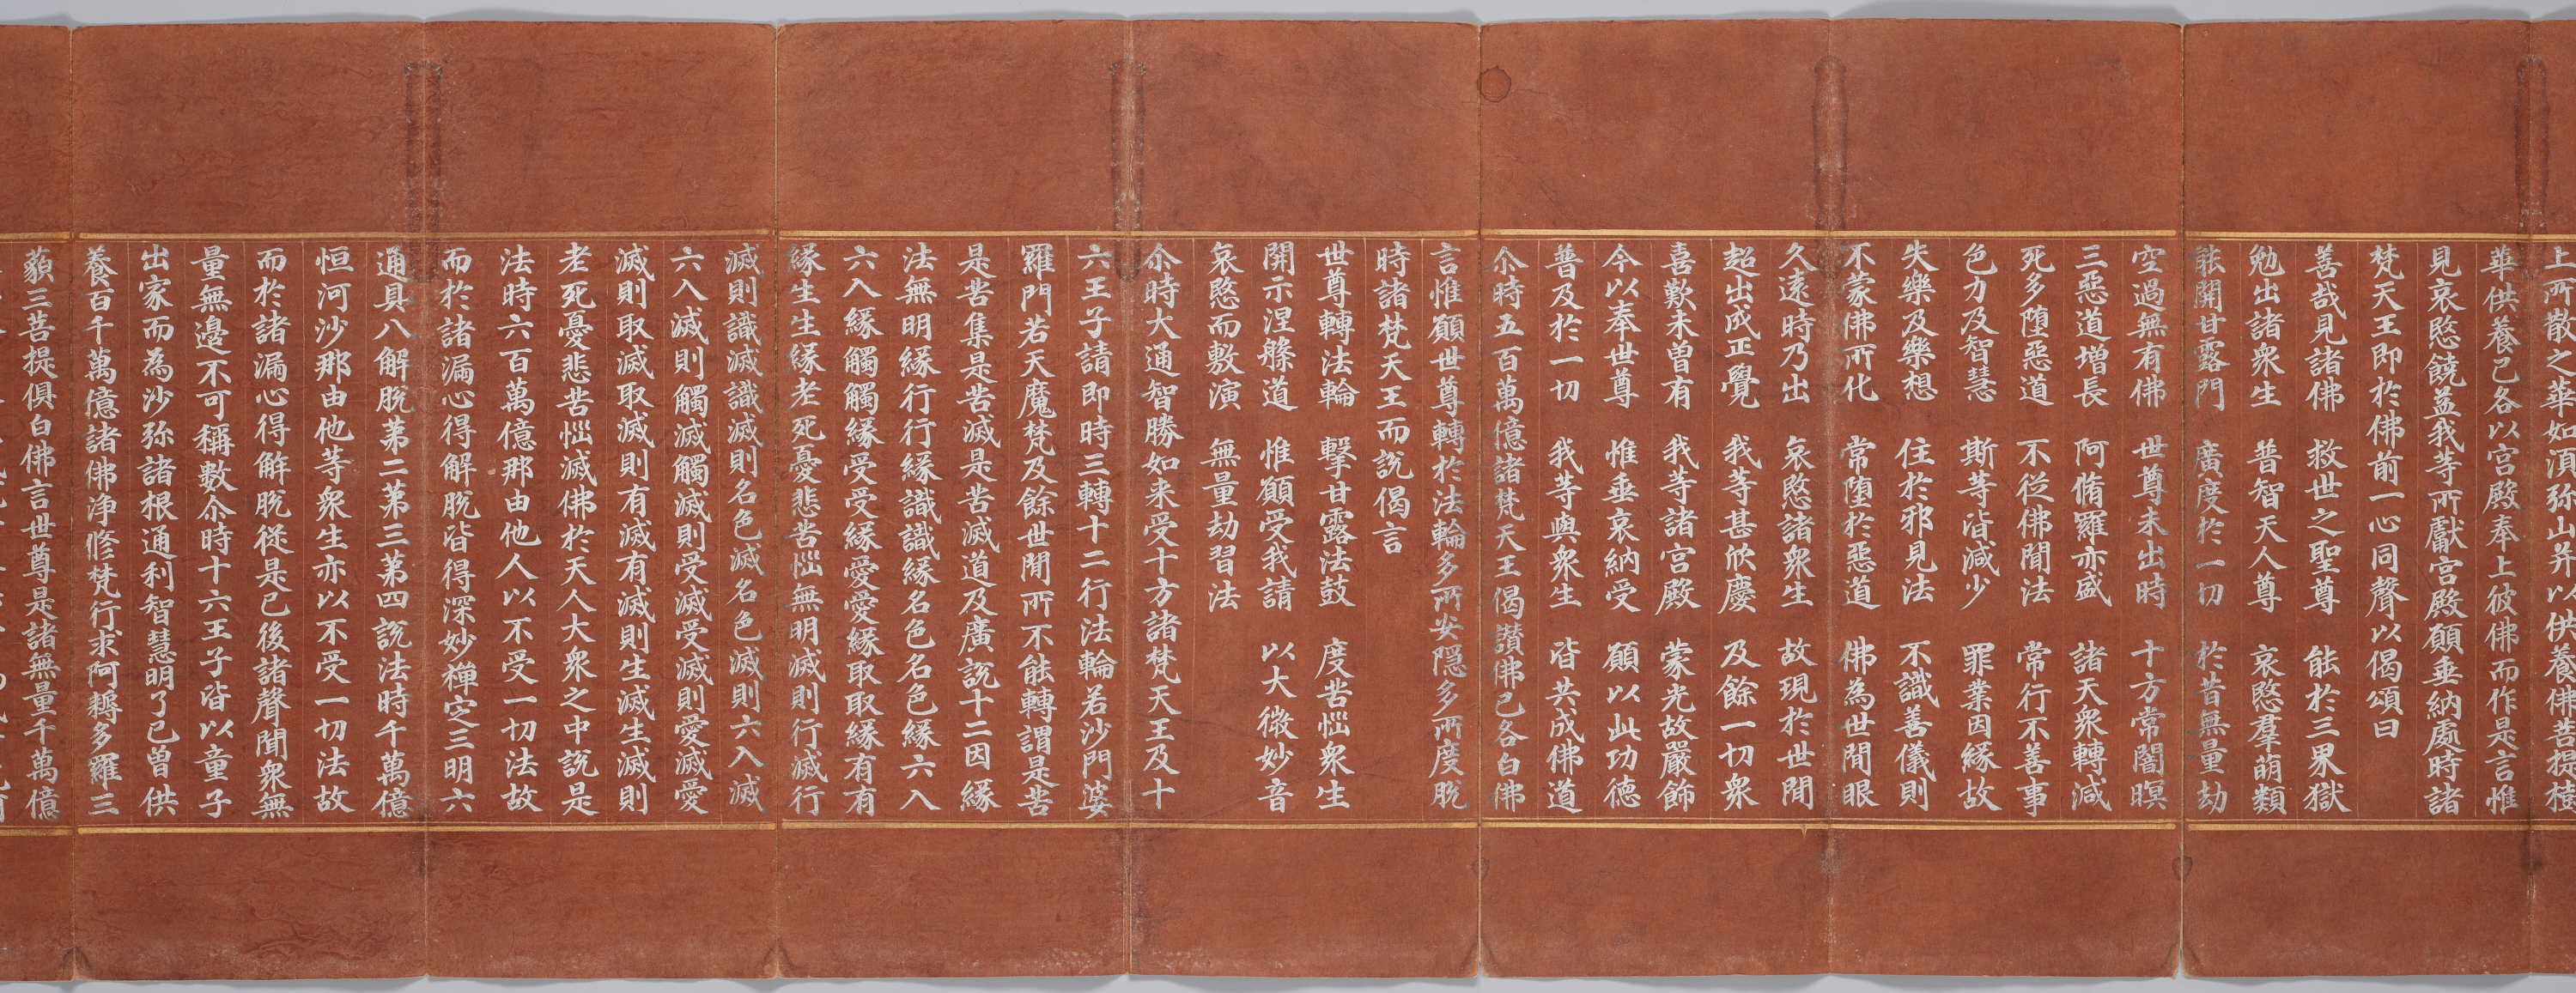 上所散之華如須弥山并以供養佛菩提樹
華供養已各以宮殿奉上彼佛而作是言惟
見哀愍饒益我等所獻宮殿願垂納處時諸
梵天王即於佛前一心同聲以偈頌曰
善哉見諸佛　救世之聖尊　能於三界獄
勉出諸衆生　普智天人尊　哀愍羣萌類
能開甘露門　廣度於一切　於昔無量劫
空過無有佛　世尊未出時　十方常闇暝
三惡道增長　阿脩羅亦盛　諸天衆轉減
死多堕惡道　不從佛聞法　常行不善事
色力及智慧　斯等皆減少　罪業因緣故
失樂及樂想　住於邪見法　不識善儀則
不蒙佛所化　常堕於惡道　佛為世間眼
久遠時乃出　哀愍諸衆生　故現於世間
超出成正覺　我等甚欣慶　及餘一切衆
喜歎未曽有　我等諸宮殿　蒙光故嚴飾
今以奉世尊　惟垂哀納受　願以此功德
普及於一切　我等與衆生　皆共成佛道
尒時五百萬億諸梵天王偈讃佛已各白佛
言惟願世尊轉於法輪多所安隱多所度脫
時諸梵天王而說偈言
世尊轉法輪　擊甘露法鼓　度苦惱衆生
開示涅槃道　惟願受我請　以大微妙音
哀愍而敷演　無量劫習法
尒時大通智勝如来受十方諸梵天王及十
六王子請即時三轉十二行法輪若沙門婆
羅門若天魔梵及餘世間所不能轉謂是苦
是苦集是苦滅是苦滅道及廣說十二因緣
法無明緣行行緣識識緣名色名色緣六入
六入緣觸觸緣受受緣愛愛緣取取緣有有
緣生生緣老死憂悲苦惱無明滅則行滅行
滅則識滅識滅則名色滅名色滅則六入滅
六入滅則觸滅觸滅則受滅受滅則愛滅愛
滅則取滅取滅則有滅有滅則生滅生滅則
老死憂悲苦惱滅佛於天人大衆之中說是
法時六百萬億那由他人以不受一切法故
而於諸漏心得解脫皆得深妙禪定三明六
通具八解脫苐二苐三苐四說法時千萬億
恒河沙那由他等衆生亦以不受一切法故
而於諸漏心得解脫從是已後諸聲聞衆無
量無邊不可稱數尒時十六王子皆以童子
出家而為沙弥諸根通利智慧明了已曽供
養百千萬億諸佛淨修梵行求阿耨多羅三
藐三菩提俱白佛言世尊是諸無量千萬億